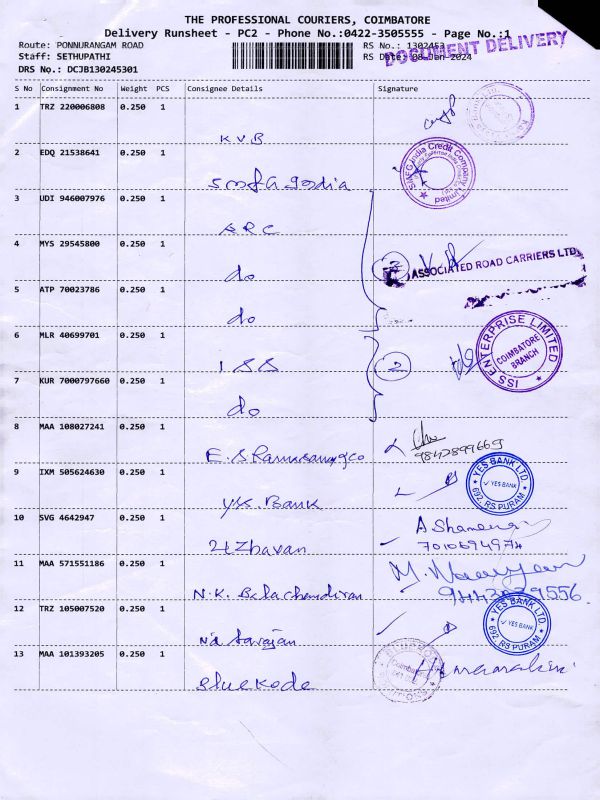 THE PROFESSIONAL COURIERS, COIMBATORE
Delivery Runsheet - PC2 - Phone No.:0422-3505555 - Page No.:1
DOCUMENT DELIVERY
Route: PONNURANGAM ROAD RS No.: 1302453
Staff: SETHUPATHI RS Date: 08-Jan-2024
DRS No.: DCJB130245301
S No Consignment No Weight PCS Consignee Details Signature
1 TRZ 220006808 0.250 1
KVB
2 EDQ 21538641 0.250 1
SMFG India Credit Company Limited
3 UDI 946007976 0.250 1
ARC
4 MYS 29545800 0.250 1
do
3
ASSOCIATED ROAD CARRIERS LTD
5 ATP 70023786 0.250 1
do
6 MLR 40699701 0.250 1
ISS
2
ISS ENTERPRISE LIMITED
COIMBATORE
BRANCH
7 KUR 7000797660 0.250 1
do
8 MAA 108027241 0.250 1
9842899669
9 IXM 505624630 0.250 1
Yss. Bank
YES BANK LTD.
YES BANK
692, RS PURAM
10 SVG 4642947 0.250 1
Uzhavan
7010694974
11 MAA 571551186 0.250 1
N.K. Balachandiran
12 TRZ 105007520 0.250 1
YES BANK LTD.
YES BANK
692, RS PURAM
13 MAA 101393205 0.250 1